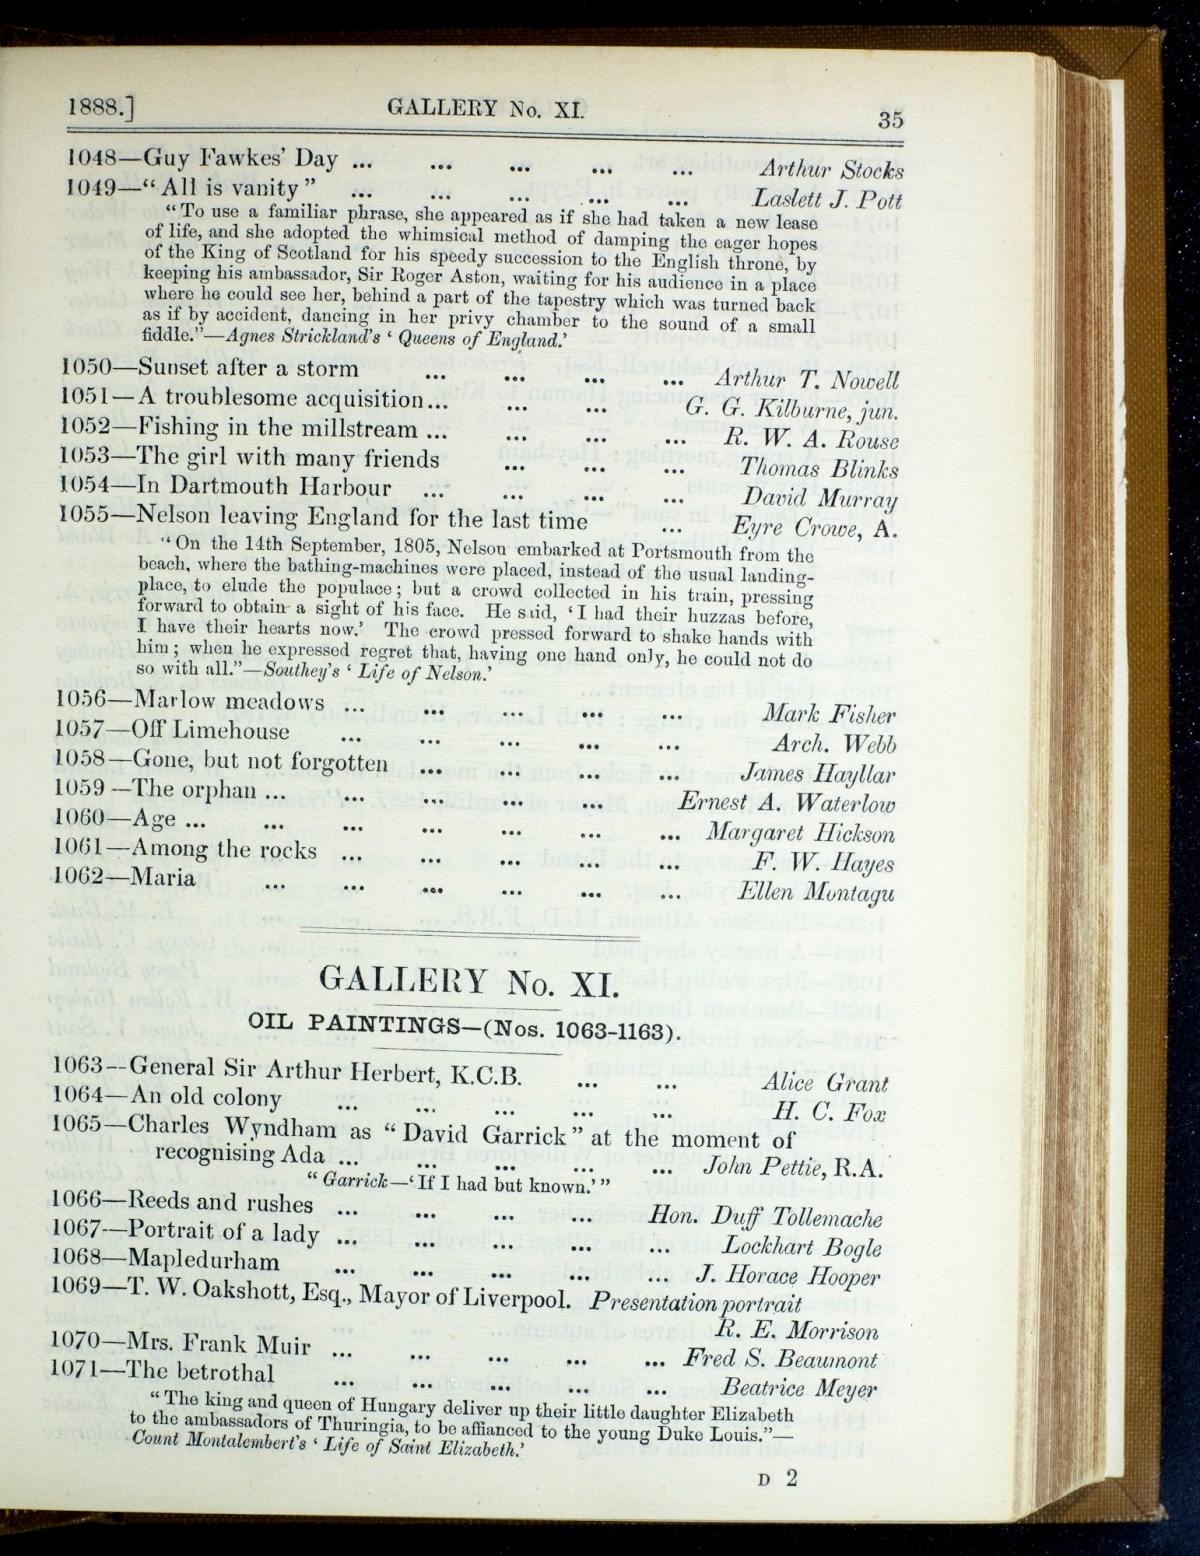 1888.] GALLERY No. XI. 35
1048—Guy Fawkes' Day ... ... ... ... ... Arthur Stocks
1049—“All is vanity” ... ... ... ... ... Laslett J. Pott
“To use a familiar phrase, she appeared as if she had taken a new lease
of life, and she adopted the whimsical method of damping the eager hopes
of the King of Scotland for his speedy succession to the English throne, by
keeping his ambassador, Sir Roger Aston, waiting for his audience in a place
where he could see her, behind a part of the tapestry which was turned back
as if by accident, dancing in her privy chamber to the sound of a small
fiddle.”—Agnes Strickland's ‘Queens of England.’
1050—Sunset after a storm ... ... ... ... Arthur T. Nowell
1051—A troublesome acquisition... ... ... G. G. Kilburne, jun.
1052—Fishing in the millstream ... ... ... ... R. W. A. Rouse
1053—The girl with many friends ... ... ... Thomas Blinks
1054—In Dartmouth Harbour ... ... ... ... David Murray
1055—Nelson leaving England for the last time ... Eyre Crowe, A.
“On the 14th September, 1805, Nelson embarked at Portsmouth from the
beach, where the bathing-machines were placed, instead of the usual landing-
place, to elude the populace; but a crowd collected in his train, pressing
forward to obtain a sight of his face. He said, ‘I had their huzzas before,
I have their hearts now.’ The crowd pressed forward to shake hands with
him; when he expressed regret that, having one hand only, he could not do
so with all.”—Southey's ‘Life of Nelson.’
1056—Marlow meadows ... ... ... ... ... Mark Fisher
1057—Off Limehouse ... ... ... ... ... Arch. Webb
1058—Gone, but not forgotten ... ... ... ... James Hayllar
1059—The orphan ... ... ... ... ... Ernest A. Waterlow
1060—Age ... ... ... ... ... ... ... Margaret Hickson
1061—Among the rocks ... ... ... ... ... F. W. Hayes
1062—Maria ... ... ... ... ... ... Ellen Montagu
GALLERY No. XI.
OIL PAINTINGS—(Nos. 1063-1163).
1063—General Sir Arthur Herbert, K.C.B. ... ... Alice Grant
1064—An old colony ... ... ... ... ... H. C. Fox
1065—Charles Wyndham as “David Garrick” at the moment of
recognising Ada ... ... ... ... ... John Pettie, R.A.
“Garrick—‘If I had but known.’”
1066—Reeds and rushes ... ... ... ... Hon. Duff Tollemache
1067—Portrait of a lady ... ... ... ... ... Lockhart Bogle
1068—Mapledurham ... ... ... ... ... J. Horace Hooper
1069—T. W. Oakshott, Esq., Mayor of Liverpool. Presentation portrait
R. E. Morrison
1070—Mrs. Frank Muir ... ... ... ... ... Fred S. Beaumont
1071—The betrothal ... ... ... ... ... Beatrice Meyer
“The king and queen of Hungary deliver up their little daughter Elizabeth
to the ambassadors of Thuringia, to be affianced to the young Duke Louis.”—
Count Montalembert's ‘Life of Saint Elizabeth.’
D 2